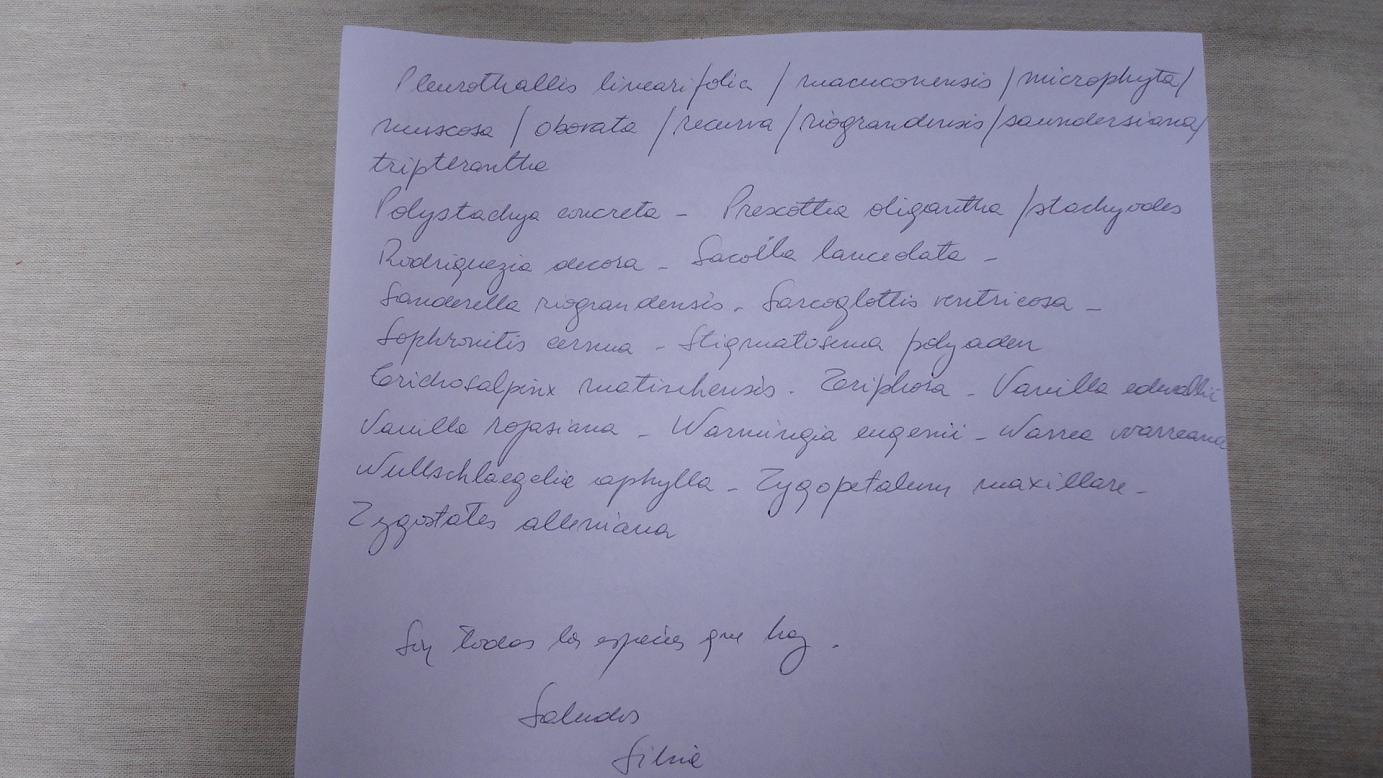 Pleurothallis linearifolia / macuconensis / microphyta /
muscosa / obovata / recurva / riograndensis / saundersiana /
tripterantha
Polystachya concreta - Prescottia oligantha / stachyodes
Rodriguezia decora - Sacoila lanceolata -
Sanderella riograndensis - Sarcoglottis ventricosa -
Sophronitis cernua - Stigmatosema polyaden
Trichosalpinx matinhensis - Triphora - Vanilla edwallii
Vanilla rojasiana - Warmingia eugenii - Warrea warreana
Wullschlaegelia aphylla - Zygopetalum maxillare -
Zygostates alleniana
Son todas las especies que hay.
Saludos
Silvia